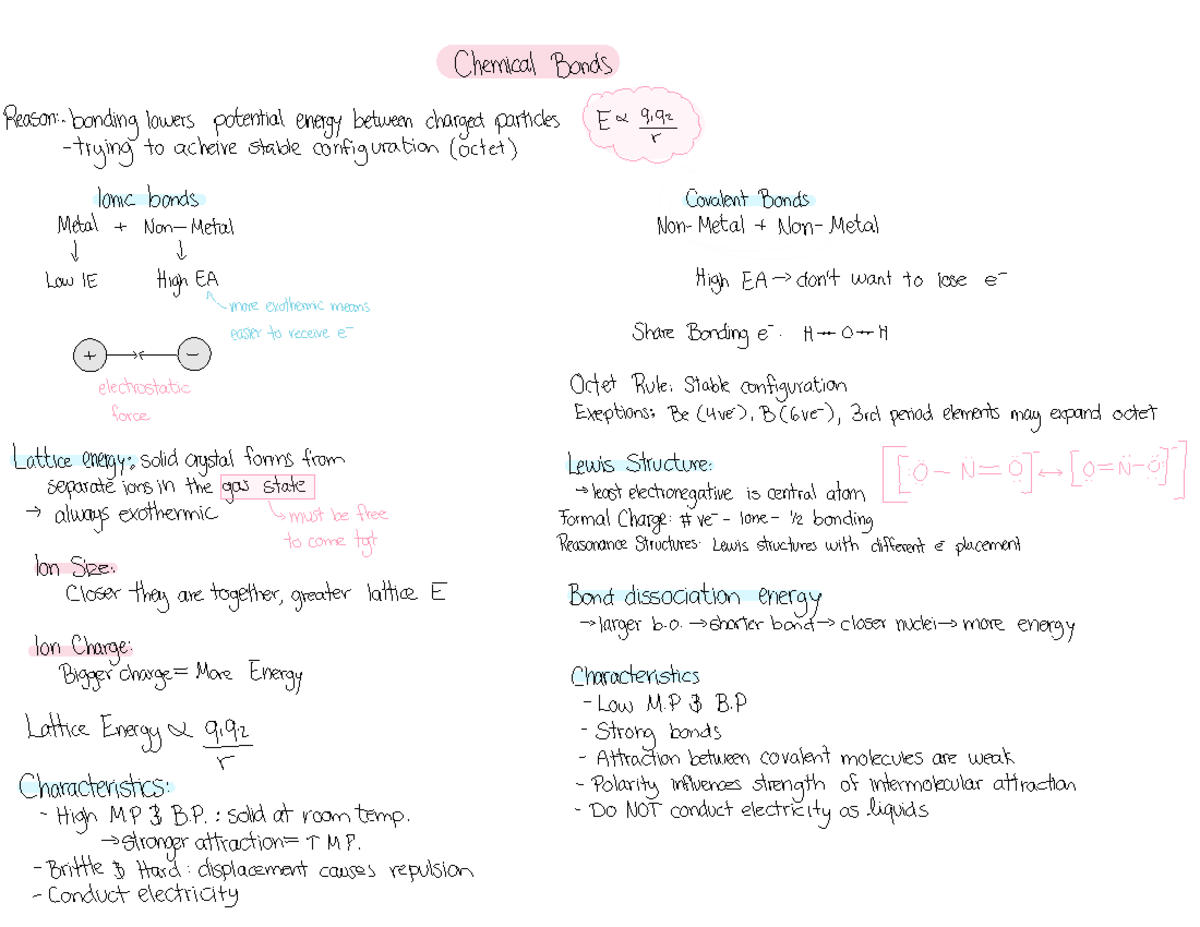 Chemical Bonds
Reason:- bonding lowers potential energy between charged particles
E ∝ q₁q₂/r
-trying to acheive stable configuration (octet)
Ionic bonds
Metal + Non-Metal
↓ ↓
Low IE High EA
more exothermic means
easier to receive e⁻
+ −
electrostatic
force
Lattice energy: solid crystal forms from
separate ions in the gas state
→ always exothermic
must be free
to come tgt
Ion Size:
Closer they are together, greater lattice E
Ion Charge:
Bigger charge = More Energy
Lattice Energy ∝ q₁q₂/r
Characteristics:
- High M.P & B.P. : solid at room temp.
→ stronger attraction = ↑ M.P.
- Brittle & Hard : displacement causes repulsion
- Conduct electricity
Covalent Bonds
Non-Metal + Non-Metal
High EA → don't want to lose e⁻
Share Bonding e⁻. H — O — H
Octet Rule: Stable configuration
Exeptions: Be (4ve⁻), B (6ve⁻), 3rd period elements may expand octet
Lewis Structure:
[[Ö − N̈ = Ö] ↔ [Ö = N̈ − Ö]]⁻
→ least electronegative is central atom
Formal Charge: # ve⁻ - lone - ½ bonding
Reasonance Structures: Lewis structures with different e⁻ placement
Bond dissociation energy
→ larger b.o. → shorter bond → closer nuclei → more energy
Characteristics
- Low M.P & B.P
- Strong bonds
- Attraction between covalent molecules are weak
- Polarity influences strength of intermolecular attraction
- Do NOT conduct electricity as liquids